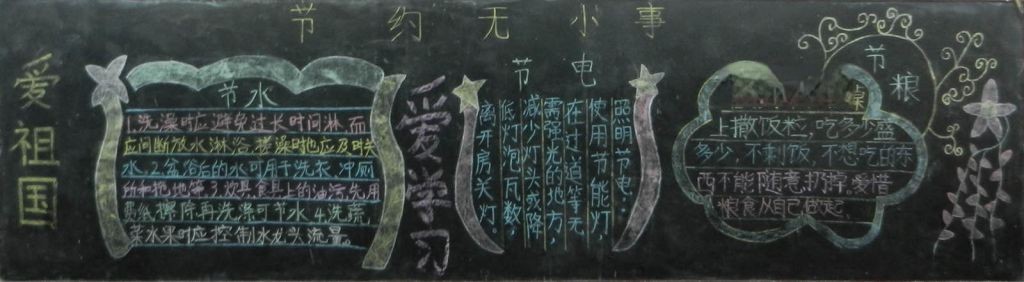 节约无小事
爱祖国
节水
1.洗澡时应避免过长时间淋,而
应间断放水淋浴。搓澡时应及时关
水。2.盆浴后的水可用于洗衣、冲厕
所和拖地等。3.炊具食具上的油污,先用
纸擦除再洗涤可节水 4.洗蔬
菜水果时应控制水龙头流量。
爱学习
节电
照明节电:
使用节能灯,
在过道等无
需强光的地方,
减少灯头或降
低灯泡瓦数,
离开房关灯。
节粮
桌
上撒饭粒,吃多少盛
多少,不剩饭,不想吃的东
西不能随意扔掉,爱惜
粮食从自己做起.